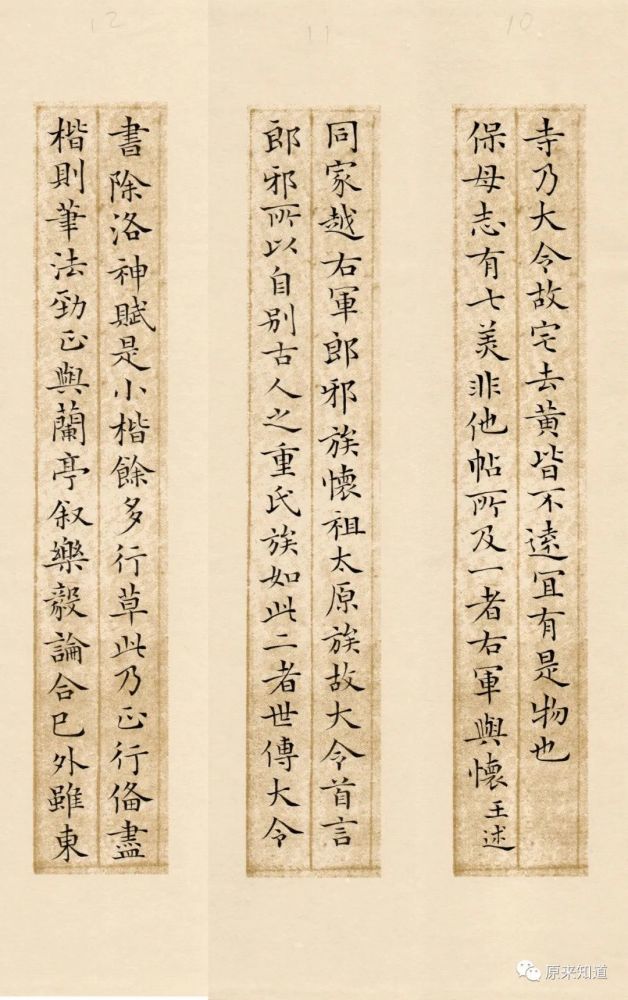 10
寺乃大令故宅去黄皆不遠冝有是物也
保母志有七美非他帖所及一者右軍與懷王述
11
同家越右軍郎邪族懷祖太原族故大令首言
郎邪所以自别古人之重氏族如此二者世傳大令
12
書除洛神賦是小楷餘多行草此乃正行俻盡
楷則筆法勁正與蘭亭叙樂毅論合已外雖東
原来知道